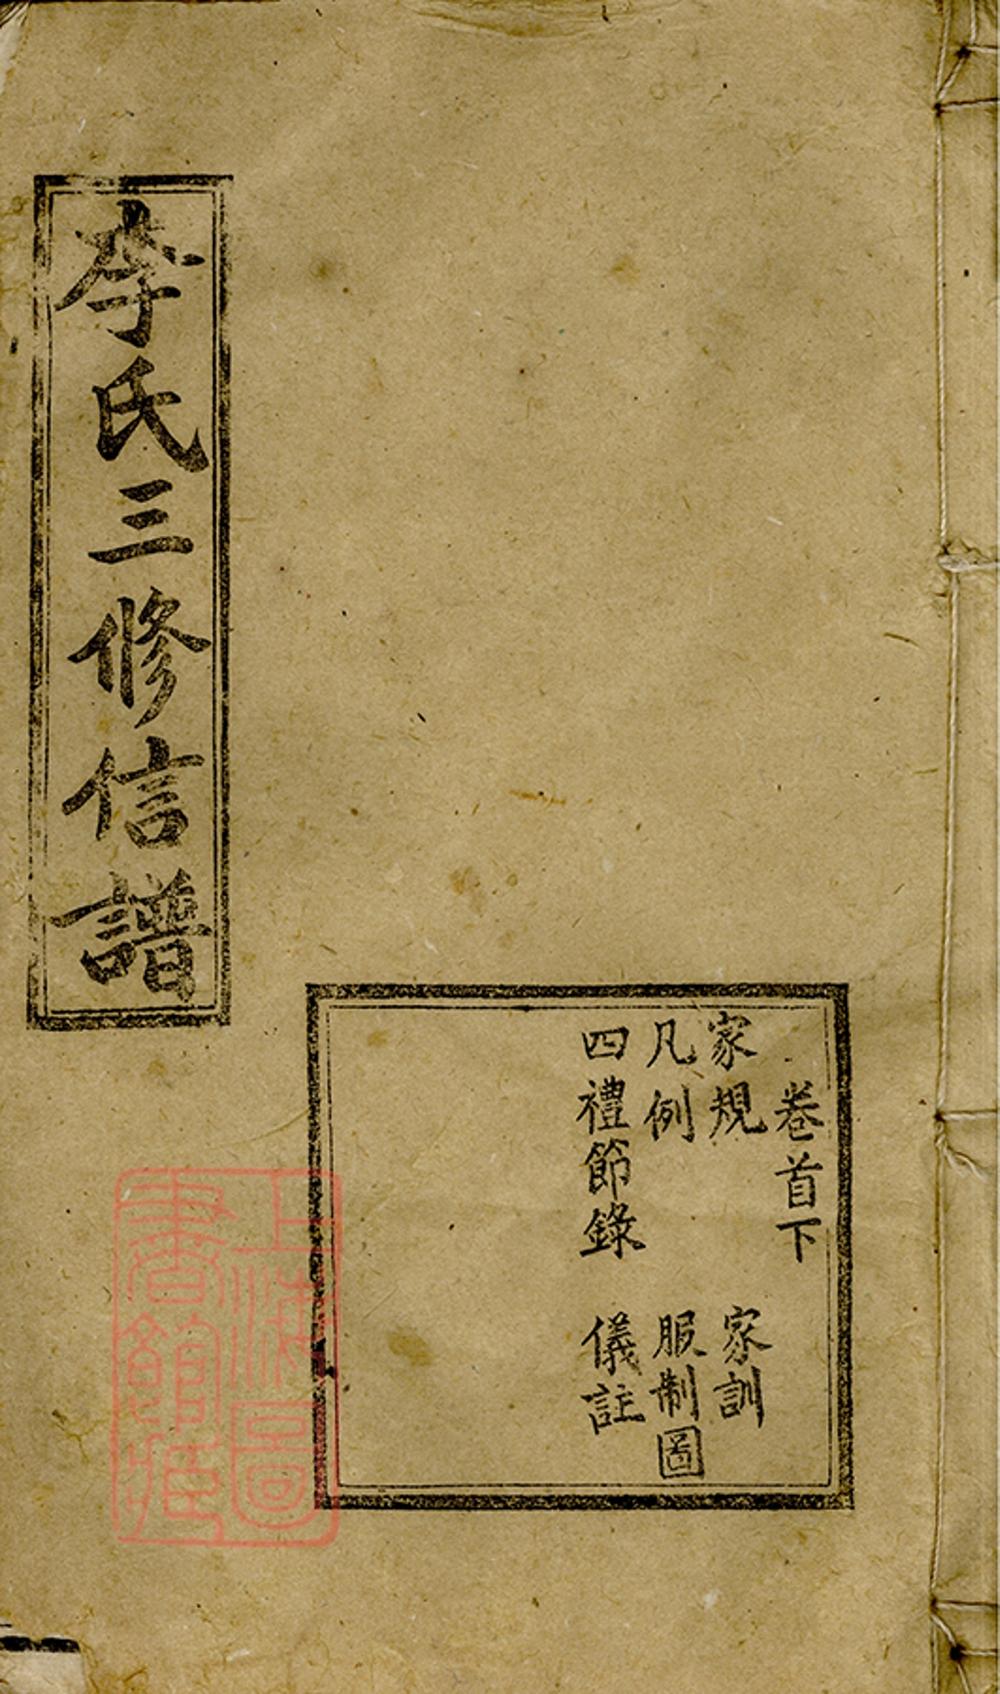 李氏三修信譜
卷首下
家規 家訓
凡例 服制圖
四禮節錄 儀註
上海圖
書館藏